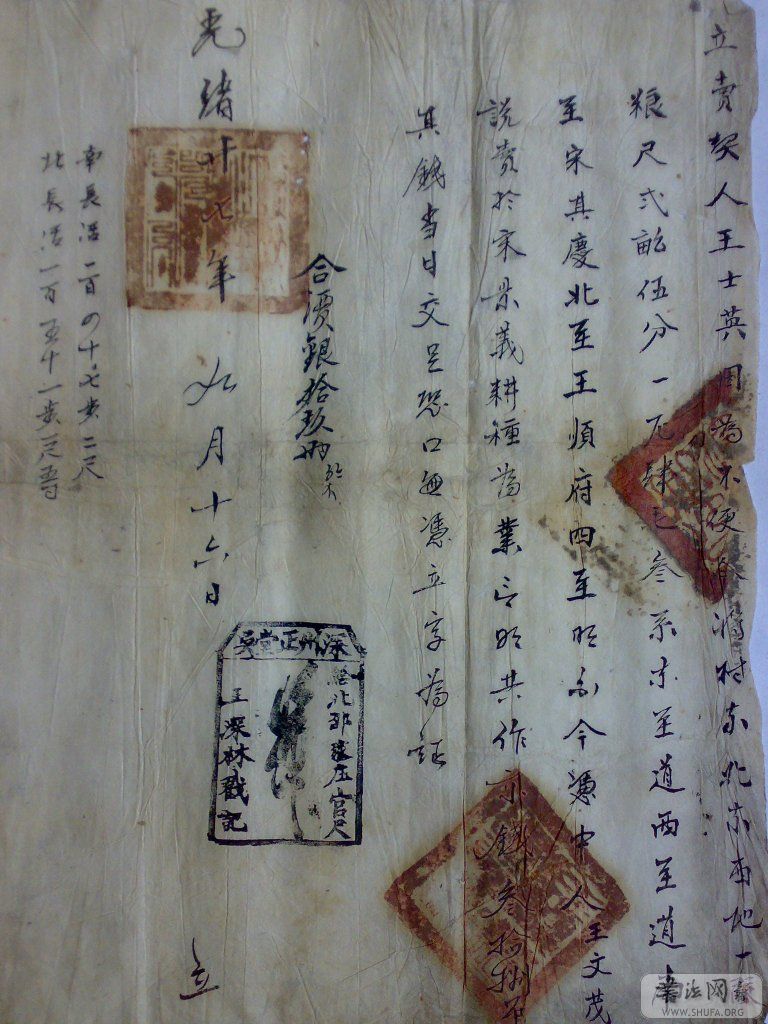 立卖契人王士英因为不便今将村东北东西地一
粮尺弍畝伍分一厘肆毛叁系东至道西至道
至宋其慶北至王順府四至明白今憑中人王文茂
説賣於宋景義耕種為業言明共作京錢叁拾捌吊
其錢当日交足恐口無憑立字為証
合價銀拾玖両
光緒十七年 九月十六日 立
南長活一百四十七步二尺
北長活一百五十一步一尺五寸
深州正堂吳
庄官尺
王深林戳記
書法网
WWW.SHUFA.ORG